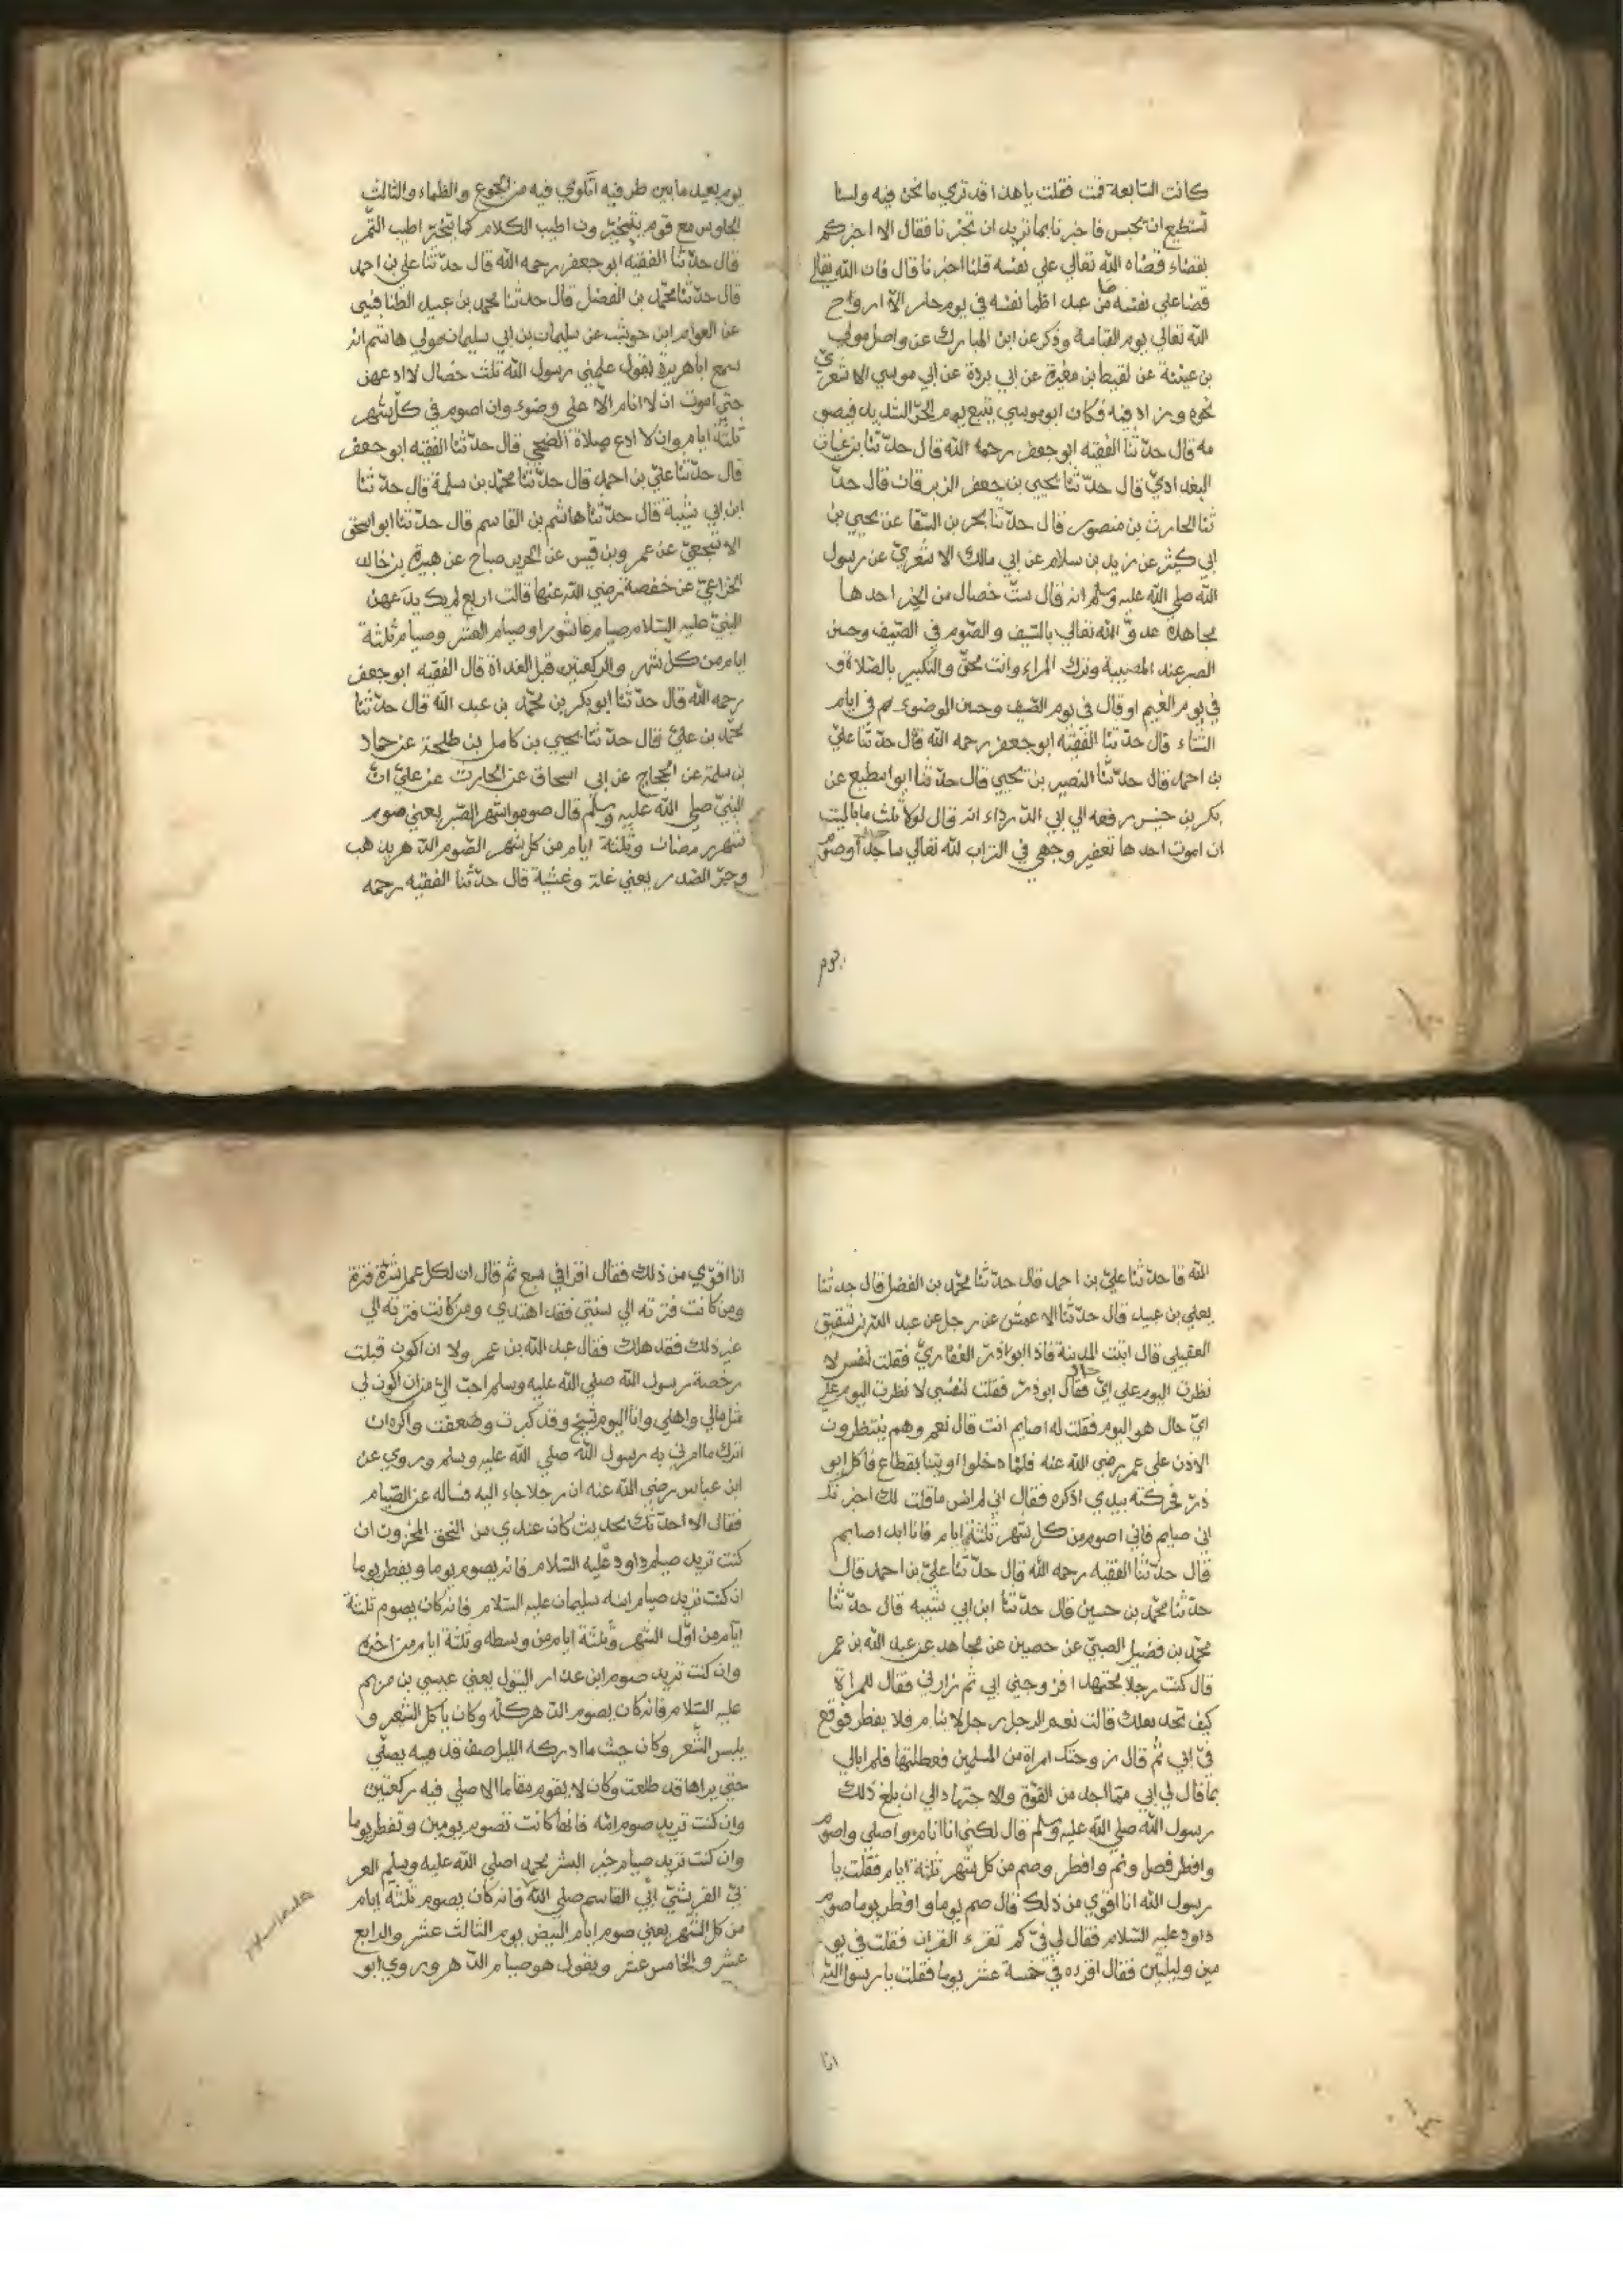 كانت السابعة قمت فقلت يا هذا قد تري ما نحن فيه ولسنا
نستطيع ان نحبس فاخبرنا بما تريد ان تخبرنا فقال الا اخبركم
بقضاء قضاه الله تعالي علي نفسه قلنا اخبرنا قال فان الله تعالي
قضا علي نفسه من عبد اظما نفسه في يوم حار الا ارواح
الله تعالي يوم القيامة وذكر عن ابن المبارك عن واصل مولي
بن عيينة عن لقيط بن مغيرة عن ابي بردة عن ابي موسي الاشعري
نحوه وزاد فيه فكان ابو موسي يتبع يوم الحر الشديد فيصو
مه قال حدثنا الفقيه ابو جعفر رحمه الله قال حدثنا بن غياث
البغدادي قال حدثنا يحيي بن جعفر الزبرقان قال حد
ثنا الحارث بن منصور قال حدثنا بحر بن السقا عن يحيي بن
ابي كثير عن زيد بن سلام عن ابي مالك الاشعري عن رسول
الله صلي الله عليه وسلم انه قال ست خصال من الخير احدها
مجاهدة عدو الله تعالي بالسيف والصوم في الصيف وحسن
الصبر عند المصيبة وترك المراء وانت محق والتكبير بالصلاة و
في يوم الغيم او قال في يوم الصيف وحسن الموضوء م في ايام
الشتاء قال حدثنا الفقيه ابو جعفر رحمه الله قال حدثنا علي
بن احمد قال حدثنا النصير بن يحيي قال حدثنا ابو مطيع عن
بكر بن خنيس رفعه الي ابي الدرداء انه قال لولا ثلث ما باليت
ان اموت احدها تعفير وجهي في التراب لله تعالي ساجدا وصوم
يوم
يوم بعيد ما بين طرفيه اتلوي فيه من الجوع والظماء والثالث
الجلوس مع قوم يتخيرون اطيب الكلام كما يتخير اطيب التمر
قال حدثنا الفقيه ابو جعفر رحمه الله قال حدثنا علي بن احمد
قال حدثنا محمد بن الفضل قال حدثنا محمد بن عبيد الطنافسي
عن العوام ابن حوشب عن سليمان بن ابي سليمان مولي هاشم انه
سمع ابا هريرة يقول علمني رسول الله ثلث خصال لا ادعهن
حتي اموت ان لا انام الا علي وضوء وان اصوم في كل شهر
ثلثة ايام وان لا ادع صلاة الضحي قال حدثنا الفقيه ابو جعفر
قال حدثنا علي بن احمد قال حدثنا محمد بن سلمة قال حدثنا
ابن ابي شيبة قال حدثنا هاشم بن القاسم قال حدثنا ابو اسحق
الاشجعي عن عمرو بن قيس عن الحر بن صباح عن هبيرة بن خالد
الخزاعي عن حفصة رضي الله عنها قالت اربع لم يكن يدعهن
النبي عليه السلام صيام عاشورا وصيام العشر وصيام ثلثة
ايام من كل شهر والركعتين قبل الغداة قال الفقيه ابو جعفر
رحمه الله قال حدثنا ابو بكر بن محمد بن عبد الله قال حدثنا
محمد بن علي قال حدثنا يحيي بن كامل بن طلحة عن حماد
بن سلمة عن الحجاج عن ابي اسحاق عن الحارث عن علي ان
النبي صلي الله عليه وسلم قال صوموا شهر الصبر يعني صوم
شهر رمضان وثلثة ايام من كل شهر الصوم الدهر يذهب
وحر الصدر يعني غلة وغشية قال حدثنا الفقيه رحمه
الله قا حدثنا علي بن احمد قال حدثنا محمد بن الفضل قال حدثنا
يعلي بن عبيد قال حدثنا الاعمش عن رجل عن عبد الله بن شقيق
العقيلي قال اتيت المدينة فاذا ابو اذر الغفاري فقلت لنفس لا
نظرت اليوم علي اي فقال ابو ذر فقلت لنفسي لا نظرت اليوم علي
اي حال هو اليوم فقلت له اصايم انت قال نعم وهم ينتظرون
الاذن علي عمر رضي الله عنه فلما دخلوا اوتينا بقطاع فاكل ابو
ذر فحركته بيدي اذكره فقال اني لم انس ما قلت لك اخبرتك
اني صايم فاني اصوم من كل شهر ثلثة ايام فانا ابدا صايم
قال حدثنا الفقيه رحمه الله قال حدثنا علي بن احمد قال
حدثنا محمد بن حسين قال حدثنا ابن ابي شيبه قال حدثنا
محمد بن فضيل الضبي عن حصين عن مجاهد عن عبد الله بن عمر
قال كنت رجلا مجتهدا فزوجني ابي ثم زارني فقال للمراة
كيف تجد بعلك قالت نعم الرجل رجل لا ينام فلا يفطر فوقع
في ابي ثم قال زوجتك امراة من المسلمين فعطلتها فلم ابالي
بما قال لي ابي مما اجد من القوة والاجتهاد الي ان بلغ ذلك
رسول الله صلي الله عليه وسلم قال لكني انا انام واصلي واصوم
وافطر فصل ونم وافطر وصم من كل شهر ثلثة ايام فقلت يا
رسول الله انا اقوي من ذلك قال صم يوما وافطر يوما صوم
داود عليه السلام فقال لي في كم تقرء القران فقلت في يو
مين وليلتين فقال اقرده في خمسة عشر يوما فقلت يا رسول الله
انا
انا اقوي من ذلك فقال اقرا في سبع ثم قال ان لكل عمل شرة فترة
ومن كانت فترته الي سنتي فقد اهتدي ومن كانت فترته الي
غير ذلك فقد هلك فقال عبد الله بن عمر ولا ان اكون قبلت
رخصة رسول الله صلي الله عليه وسلم احب الي من ان اكون لي
مثل مالي واهلي وانا اليوم شيخ وقد كبرت وضعفت واكره ان
اترك ما امرني به رسول الله صلي الله عليه وسلم وروي عن
ابن عباس رضي الله عنه ان رجلا جاء اليه فساله عن الصيام
فقال الا احدثك بحديث كان عندي من التحق المحزون ان
كنت تريد صيام داود عليه السلام فانه يصوم يوما ويفطر يوما
ان كنت تريد صيام ابنه سليمان عليه السلام فانه كان يصوم ثلثة
ايام من اول الشهر وثلثة ايام من وسطه وثلثة ايام من اخره
وان كنت تريد صوم ابن عذار البتول يعني عيسي بن مريم
عليه السلام فانه كان يصوم الدهر كله وكان ياكل الشعر و
يلبس الشعر وكان حيث ما ادركه الليل صف قدميه يصلي
حتي يراها قد طلعت وكان لا يقوم مقاما الا صلي فيه ركعتين
وان كنت تريد صوم امه فانها كانت تصوم يومين وتفطر يوما
وان كنت تريد صيام خير البشر محمد اصلي الله عليه وسلم العر
بي القريشي ابي القاسم صلي الله فانه كان يصوم ثلثة ايام
من كل الشهر يعني صوم ايام البيض يوم الثالث عشر والرابع
عشر والخامس عشر ويقول هو صيام الدهر وروي ابو